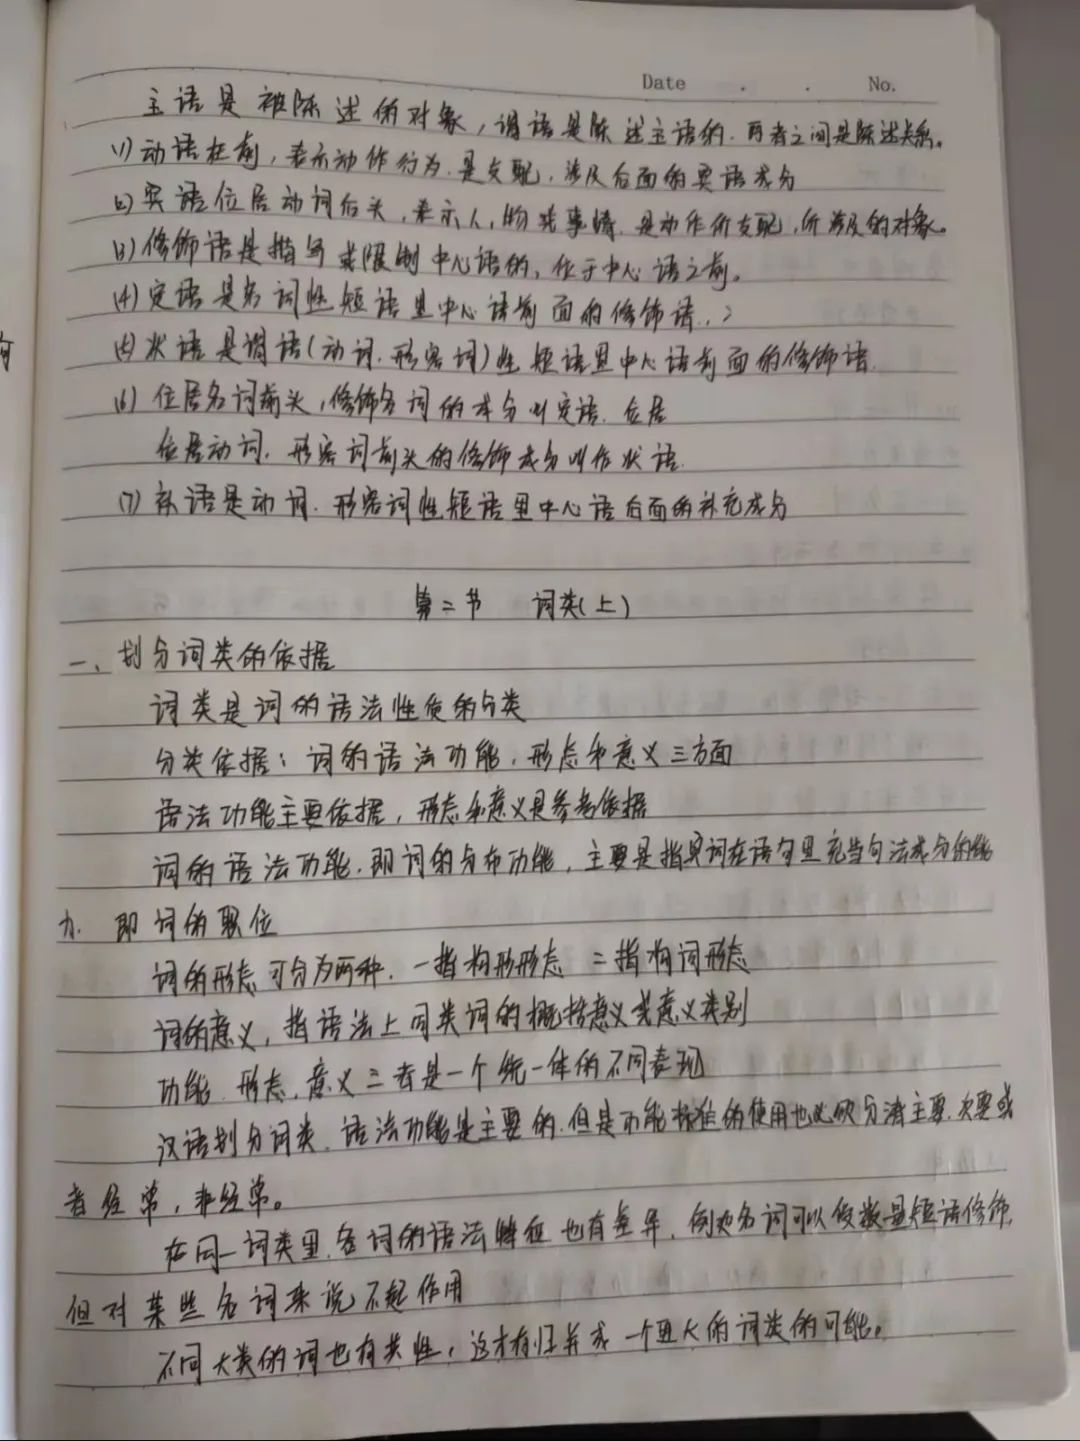 Date . . No.
主语是被陈述的对象，谓语是陈述主语的.两者之间是陈述关系。
(1) 动语在前，表示动作行为.是支配.涉及后面的宾语成分
(2) 宾语位居动词后头，表示人,物或事情.是动作所支配,所涉及的对象。
(3) 修饰语是描写或限制中心语的,位于中心语之前。
(4) 定语是名词性短语里中心语前面的修饰语..
(5) 状语是谓语(动词.形容词)性短语里中心语前面的修饰语.
(6) 位居名词前头,修饰名词的成分叫定语.位居
位居动词.形容词前头的修饰成分叫作状语.
(7) 补语是动词.形容词性短语里中心语后面的补充成分
第二节 词类(上)
一、划分词类的依据
词类是词的语法性质的分类
分类依据：词的语法功能.形态和意义三方面
语法功能主要依据，形态和意义是参考依据
词的语法功能.即词的分布功能，主要是指具词在语句里充当句法成分的能
力.即词的职位
词的形态可分为两种.一指构形形态 二指构词形态
词的意义，指语法上同类词的概括意义或意义类别
功能.形态.意义三者是一个统一体的不同表现
汉语划分词类.语法功能是主要的.但是功能标准的使用也必须分清主要.次要或
者经常，非经常。
在同一词类里.各词的语法特征也有差异.例如名词可以受数量短语修饰.
但对某些名词来说不起作用
不同大类的词也有共性，这才有归并成一个更大的词类的可能。